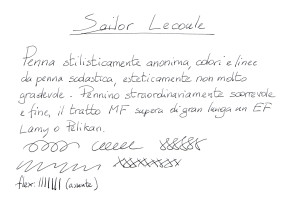 Sailor Lecoule
Penna stilisticamente anonima, colori e linee
da penna scolastica, esteticamente non molto
gradevole. Pennino straordinariamente scorrevole
e fine, il tratto MF supera di gran lunga un EF
Lamy o Pelikan.
flex: (assente)